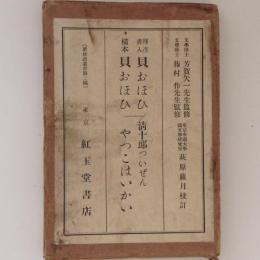 文學博士 芳賀矢一先生監修
文學博士 藤村 作先生監修
東京帝國大學
國文學研究室 萩原蘿月校訂
標注
書入 貝おほひ
清十郎ついぜん
橫本 貝おほひ
やつこはいかい
東京 紅玉堂書店